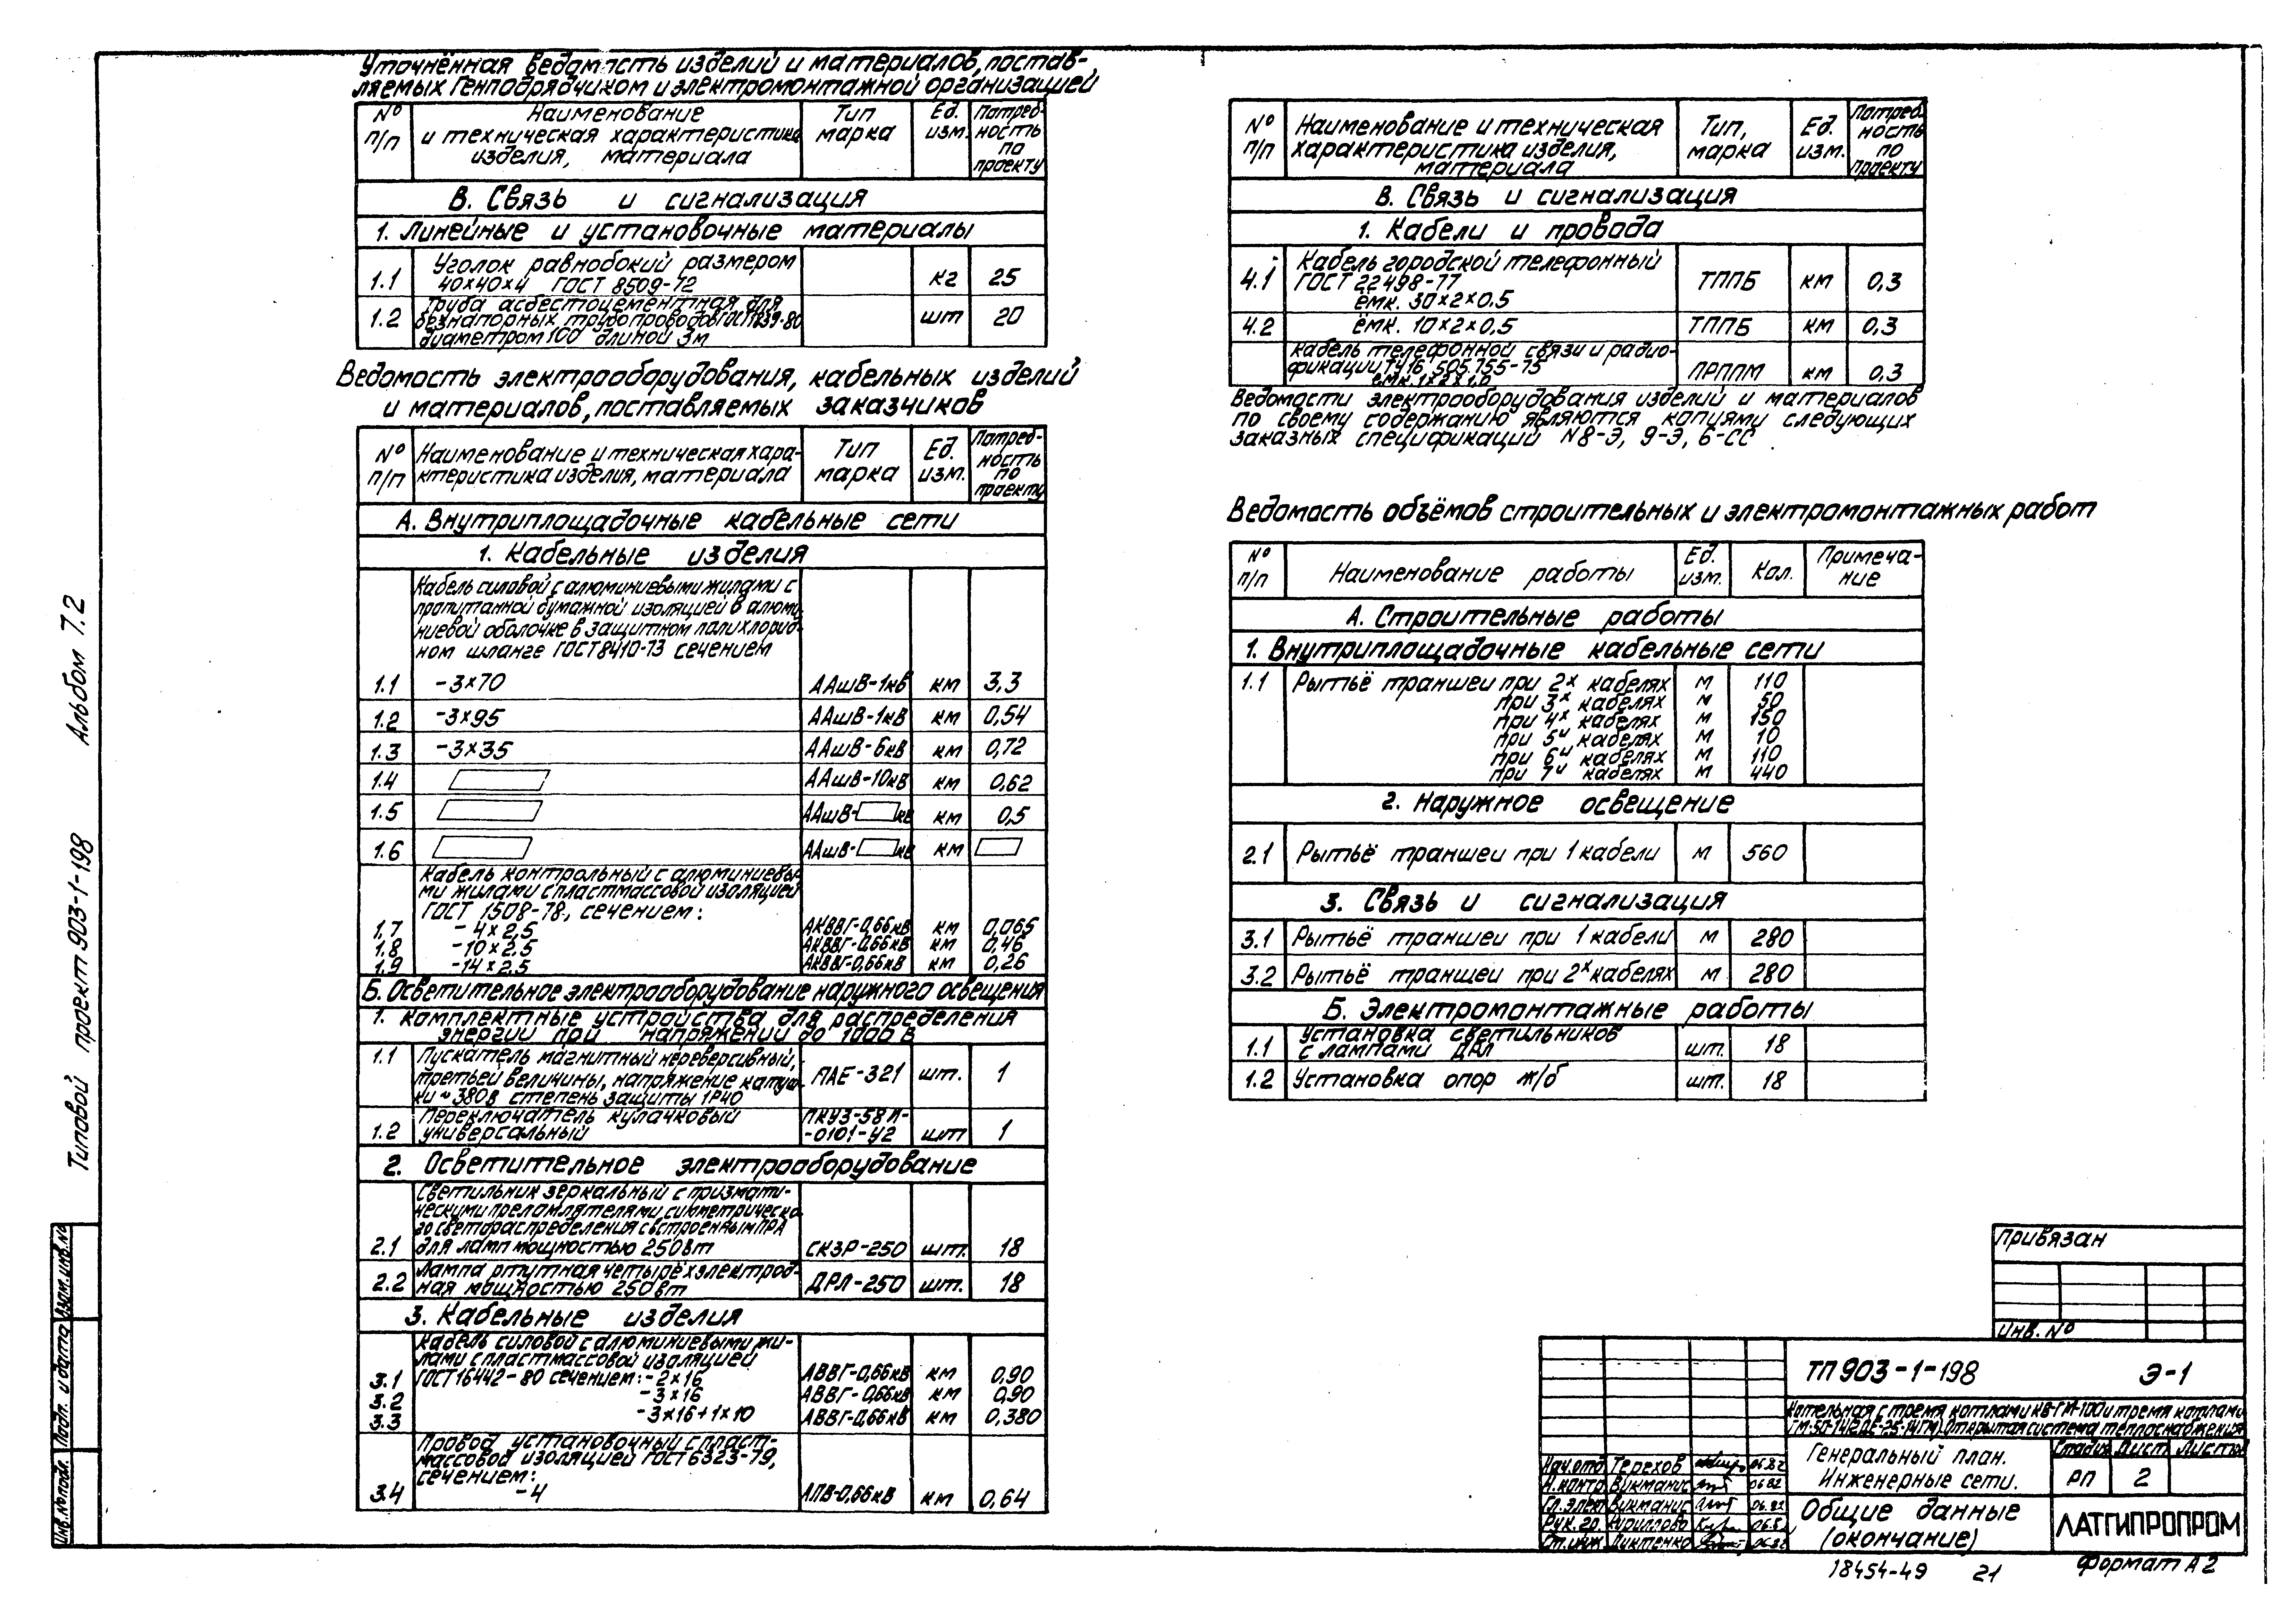 Уточнённая ведомость изделий и материалов, постав-
ляемых Генподрядчиком и электромонтажной организацией
№ п/п Наименование и техническая характеристика изделия, материала Тип марка Ед. изм. Потреб-ность по проекту
В. Связь и сигнализация
1. Линейные и установочные материалы
1.1 Уголок равнобокий размером
40×40×4 ГОСТ 8509-72 кг 25
1.2 Труба асбестоцементная для
безнапорных трубопроводов ГОСТ 1839-80
диаметром 100 длиной 3м шт 20
Ведомость электрооборудования, кабельных изделий
и материалов, поставляемых заказчиков
№ п/п Наименование и техническая хара-
ктеристика изделия, материала Тип марка Ед. изм. Потреб-ность по проекту
А. Внутриплощадочные кабельные сети
1. Кабельные изделия
Кабель силовой с алюминиевыми жилами с
пропитанной бумажной изоляцией в алюми-
ниевой оболочке в защитном полихлорид-
ном шланге ГОСТ 8410-73 сечением
1.1 -3×70 ААшВ-1кВ км 3,3
1.2 -3×95 ААшВ-1кВ км 0,54
1.3 -3×35 ААшВ-6кВ км 0,72
1.4 ААшВ-10кВ км 0,62
1.5 ААшВ- кВ км 0,5
1.6 ААшВ- кВ км
Кабель контрольный с алюминиевы-
ми жилами с пластмассовой изоляцией
ГОСТ 1508-78, сечением:
1.7 -4×2,5 АКВВГ-0,66кВ км 0,065
1.8 -10×2,5 АКВВГ-0,66кВ км 0,46
1.9 -14×2,5 АКВВГ-0,66кВ км 0,26
Б. Осветительное электрооборудование наружного освещения
1. Комплектные устройства для распределения
энергии при напряжении до 1000 В
1.1 Пускатель магнитный нереверсивный,
третьей величины, напряжение катуш-
ки ~380в степень защиты 1Р40 ПАЕ-321 шт. 1
1.2 Переключатель кулачковый
универсальный ПКУ3-58И-
-0101-У2 шт 1
2. Осветительное электрооборудование
Светильник зеркальный с призмати-
ческими преломлятелями, симметрическо-
го светораспределения с встроенным ПРА
2.1 для ламп мощностью 250вт СКЗР-250 шт. 18
Лампа ртутная четырёхэлектрод-
2.2 ная мощностью 250вт ДРЛ-250 шт. 18
3. Кабельные изделия
Кабель силовой с алюминиевыми жи-
лами с пластмассовой изоляцией
3.1 ГОСТ 16442-80 сечением: -2×16 АВВГ-0,66кВ км 0,90
3.2 -3×16 АВВГ-0,66кВ км 0,90
3.3 -3×16+1×10 АВВГ-0,66кВ км 0,380
Провод установочный с пласт-
массовой изоляцией ГОСТ 6323-79,
сечением:
3.4 -4 АПВ-0,66кВ км 0,64
№ п/п Наименование и техническая
характеристика изделия,
материала Тип, марка Ед. изм. Потреб. ность по проекту
В. Связь и сигнализация
1. Кабели и провода
4.1 Кабель городской телефонный
ГОСТ 22498-77
ёмк. 30×2×0.5 ТППБ км 0,3
4.2 ёмк. 10×2×0,5 ТППБ км 0,3
Кабель телефонной связи и радио-
фикации ТУ16 505.755-75
ёмк. 1×2×1,0 ПРППМ км 0,3
Ведомости электрооборудования изделий и материалов
по своему содержанию являются копиями следующих
заказных спецификаций N8-Э, 9-Э, 6-СС
Ведомость объёмов строительных и электромонтажных работ
№ п/п Наименование работы Ед. изм. Кол. Примеча-ние
А. Строительные работы
1. Внутриплощадочные кабельные сети
1.1 Рытьё траншеи при 2х кабелях м 110
при 3х кабелях м 50
при 4х кабелях м 150
при 5и кабелях м 10
при 6и кабелях м 110
при 7и кабелях м 440
2. Наружное освещение
2.1 Рытьё траншеи при 1 кабели м 560
3. Связь и сигнализация
3.1 Рытьё траншеи при 1 кабели м 280
3.2 Рытьё траншеи при 2х кабелях м 280
Б. Электромонтажные работы
1.1 Установка светильников
с лампами ДРЛ шт. 18
1.2 Установка опор ж/б шт. 18
Типовой проект 903-1-198 Альбом 7.2
Инв. № подл. Подп. и дата Взам. инв. №
Привязан
Инв. №
ТП 903-1-198 Э-1
Котельная с тремя котлами КВ-ГМ-100 и тремя котлами
Открытая система теплоснабжения
Генеральный план.
Инженерные сети.
Стадия Лист Листов
РП 2
Общие данные
(окончание)
ЛАТГИПРОПРОМ
Нач. отд Терехов 06.82
Н. контр Виктанис 06.82
Гл. элек Виктанис 06.82
Рук. гр. Кириллова
Ст. инж 06.82
18454-49 21
Формат А2